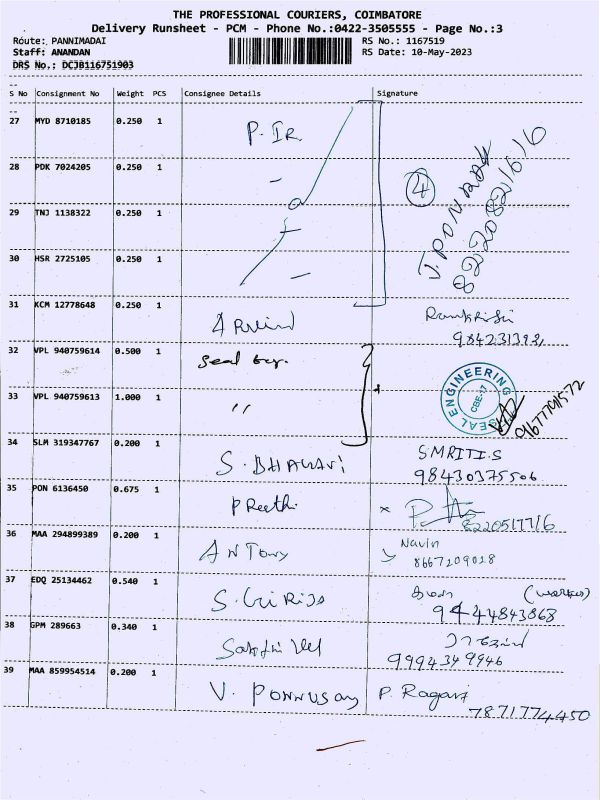 THE PROFESSIONAL COURIERS, COIMBATORE
Delivery Runsheet - PCM - Phone No.:0422-3505555 - Page No.:3
Route: PANNIMADAI RS No.: 1167519
Staff: ANANDAN RS Date: 10-May-2023
DRS No.: DCJB116751903
S No Consignment No Weight PCS Consignee Details Signature
27 MYD 8710185 0.250 1 P. Ir
28 PDK 7024205 0.250 1 4
29 TNJ 1138322 0.250 1
30 HSR 2725105 0.250 1
J. PONRAJ
31 KCM 12778648 0.250 1 Arvind
32 VPL 940759614 0.500 1 Seal
33 VPL 940759613 1.000 1 "
SEAL ENGINEERING
CBE-17
34 SLM 319347767 0.200 1 S. BHAVANI SMRITI.S
98430375506
35 PON 6136450 0.675 1 Preethi
8220517716
36 MAA 294899389 0.200 1 ANTONY Navin
8667209028
37 EDQ 25134462 0.540 1 S. Girija (worker)
9444843868
38 GPM 289663 0.340 1 Sakthi Vel
9994349946
39 MAA 859954514 0.200 1 V. PONNUSAMY P. Ragavi
7871774450